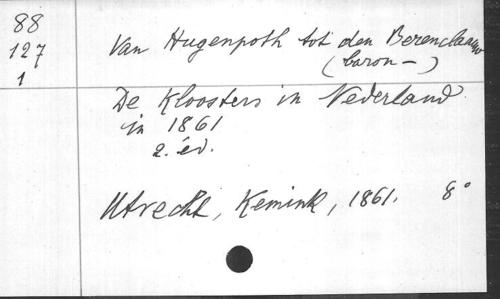 88
127
1
Van Hugenpoth tot den Berenclaauw
(baron -)
De Kloosters in Nederland
in 1861
2. éd.
Utrecht, Kemink, 1861. 8°